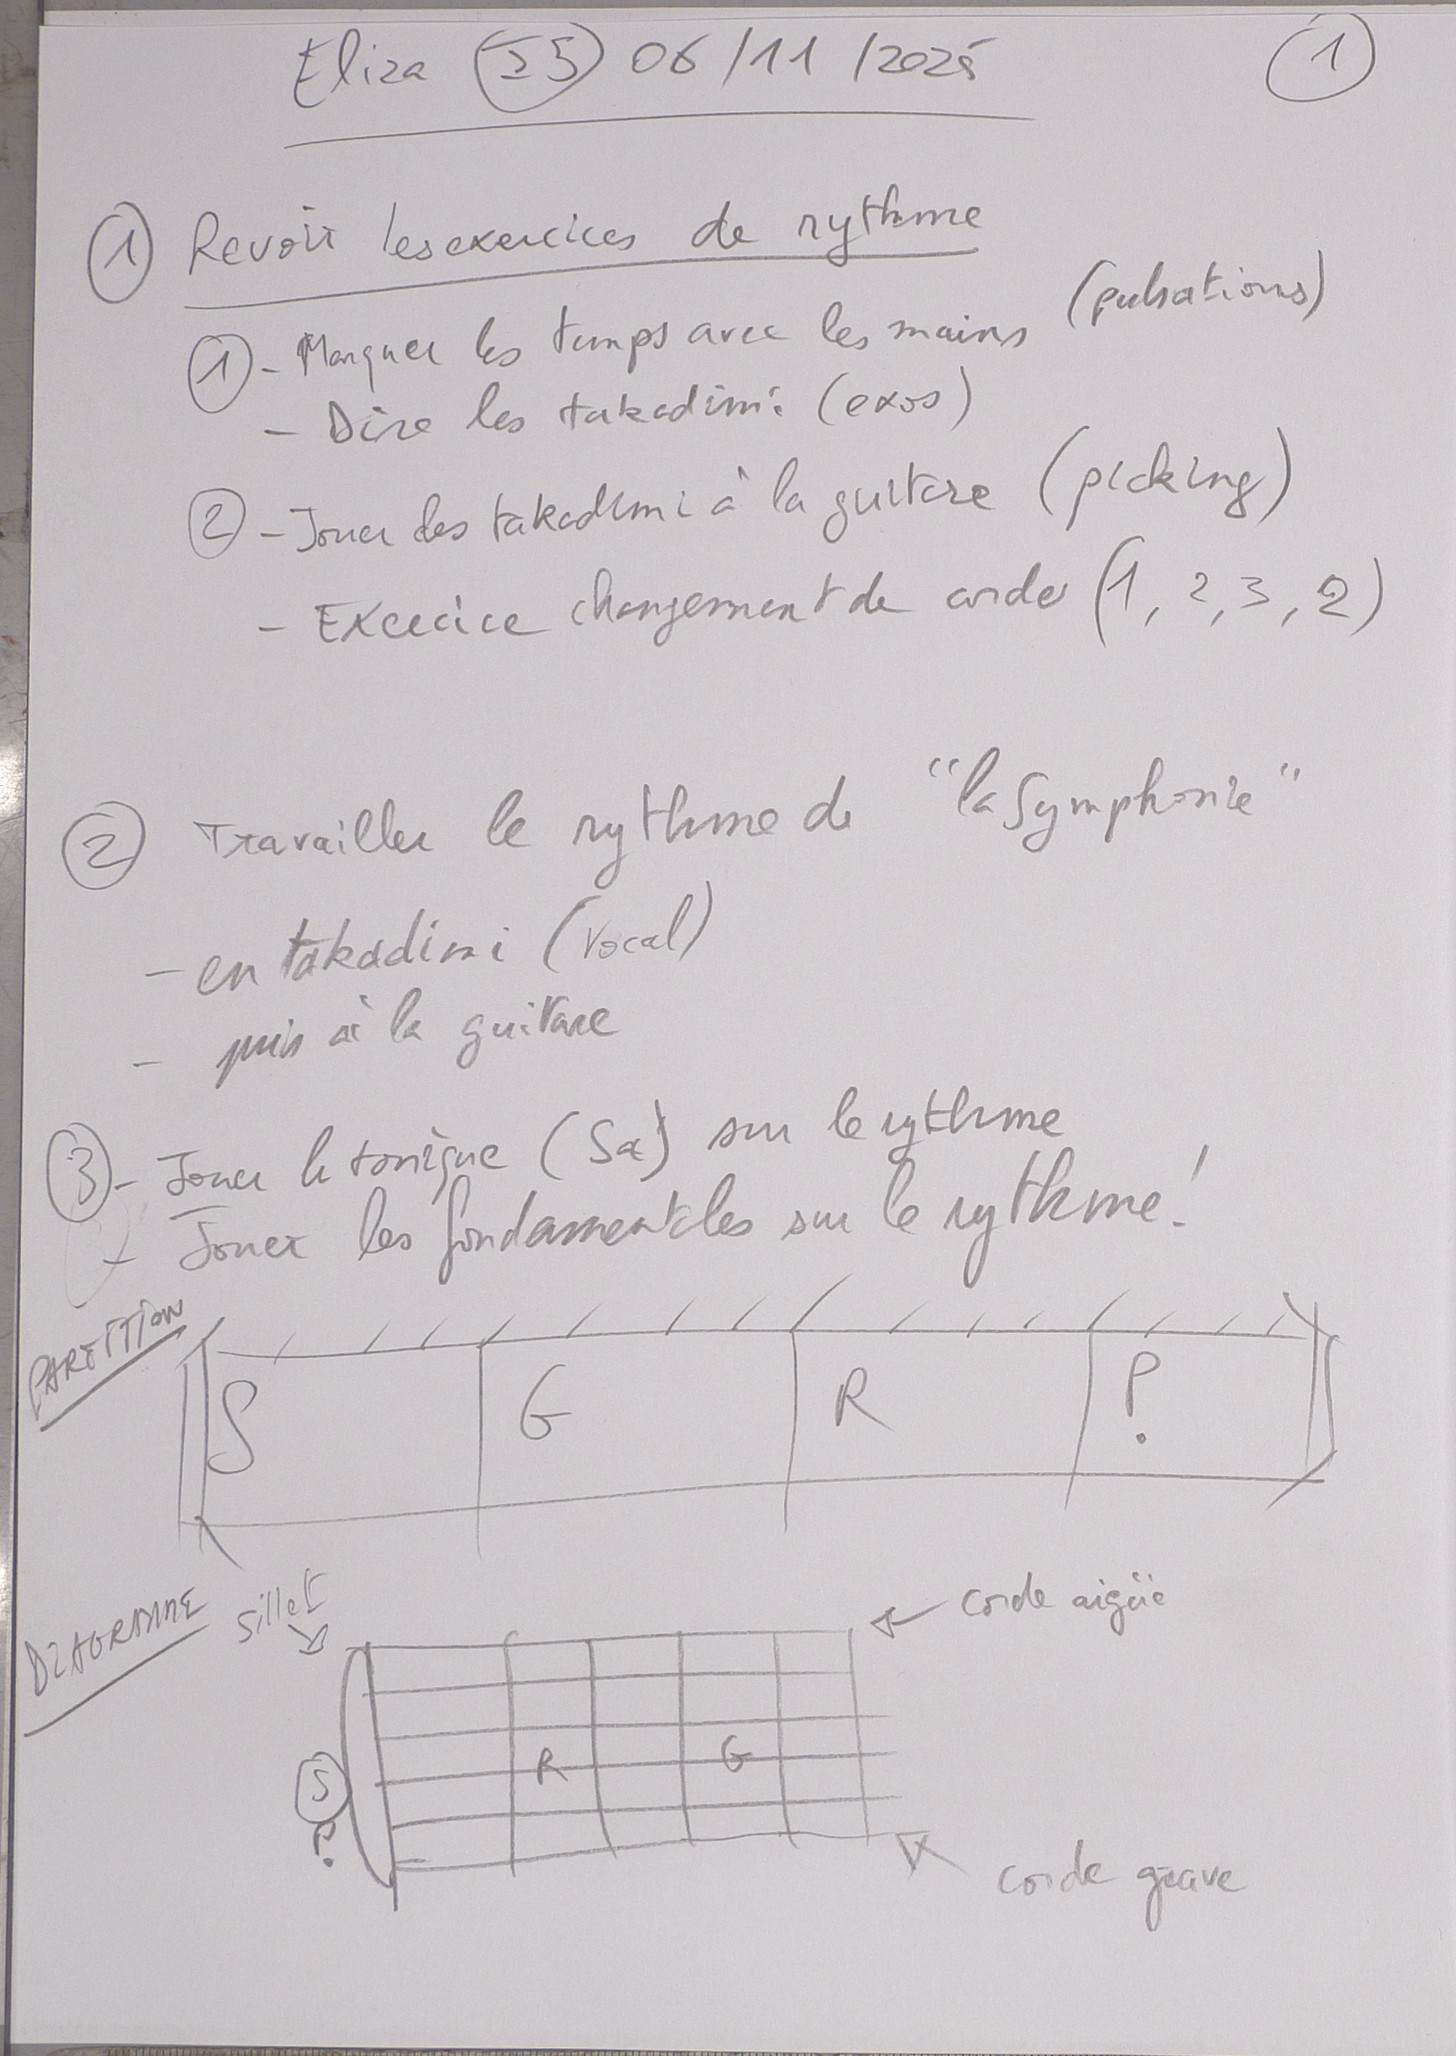 Eliza 25 06/11/2025 1
1 Revoir les exercices de rythme
1 - Marquer les temps avec les mains (pulsations)
- Dire les takadimi (exos)
2 - Jouer les takadimi à la guitare (picking)
- Excecice changement de corde (1, 2, 3, 2)
2 Travailler le rythme de "la Symphonie"
- en takadimi (vocal)
- puis à la guitare
3 - Jouer la tonique (Sa) sur le rythme
- Jouer les fondamentales sur le rythme!
PARTITION
S G R P
DIAGRAMME
sillet
corde aigüe
R G
S
P
corde grave